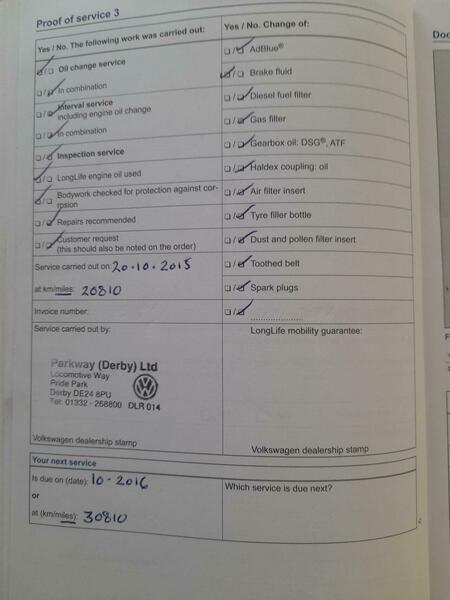 Proof of service 3
Yes / No. The following work was carried out:
Oil change service
In combination
Interval service
including engine oil change
In combination
Inspection service
LongLife engine oil used
Bodywork checked for protection against cor-
rosion
Repairs recommended
Customer request
(this should also be noted on the order)
Service carried out on: 20-10-2015
at km/miles: 20810
Invoice number:
Service carried out by:
Parkway (Derby) Ltd
Locomotive Way
Pride Park
Derby DE24 8PU
Tel: 01332 - 268800 DLR 014
Volkswagen dealership stamp
Yes / No. Change of:
AdBlue®
Brake fluid
Diesel fuel filter
Gas filter
Gearbox oil: DSG®, ATF
Haldex coupling: oil
Air filter insert
Tyre filler bottle
Dust and pollen filter insert
Toothed belt
Spark plugs
LongLife mobility guarantee:
Volkswagen dealership stamp
Your next service
Is due on (date): 10-2016
or
at (km/miles): 30810
Which service is due next?